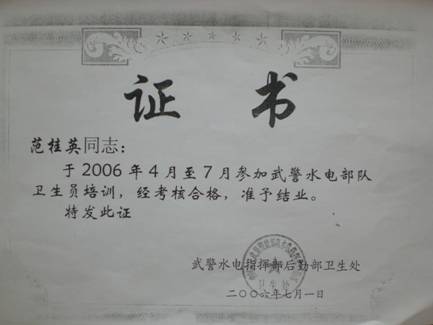 证书
范桂英同志：
于2006年4月至7月参加武警水电部队
卫生员培训，经考核合格，准予结业。
特发此证
武警水电指挥部后勤部卫生处
卫生处
二〇〇六年七月一日